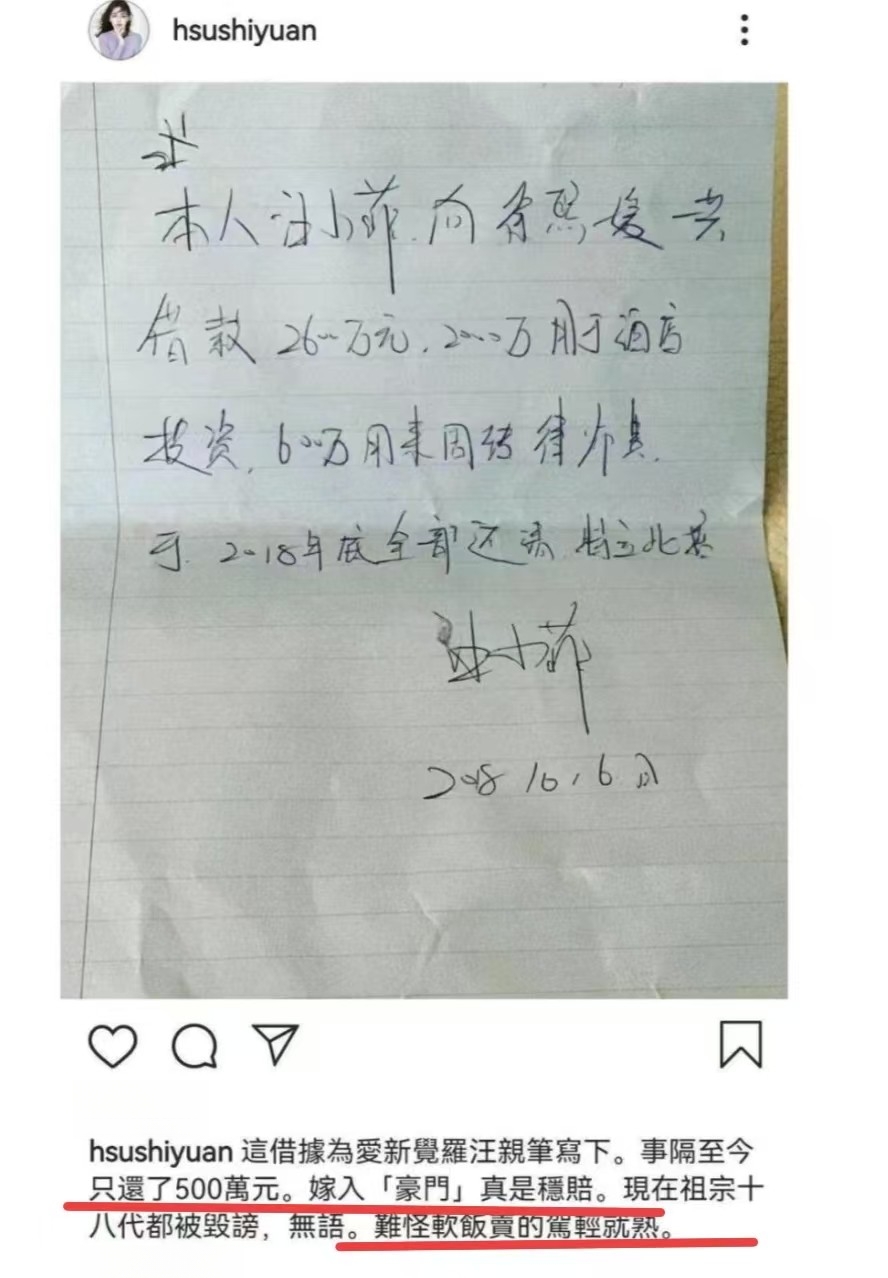 hsushiyuan
本人汪小菲.向徐熙媛共
借款2600万元.2000万用于酒店
投资,600万用来周转律师费.
于.2018年底全部还清.特立此据
汪小菲
2018 10,6日
hsushiyuan 這借據為愛新覺羅汪親筆寫下。事隔至今
只還了500萬元。嫁入「豪門」真是穩賠。現在祖宗十
八代都被毀謗，無語。難怪軟飯賣的駕輕就熟。